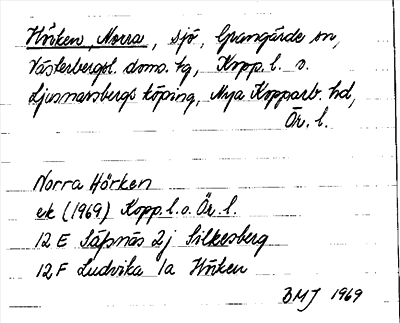 Hörken, Norra, sjö, Grangärde sn,
Västerbergsl. doms. hg, Kopp. l. o.
Ljusnarsbergs köping, Nya Kopparb. hd,
Ör. l.
Norra Hörken
ek (1969) Kopp. l. o. Ör. l.
12 E Säfsnäs 2j Silkesberg
12 F Ludvika 1a Hörken
BMJ 1969